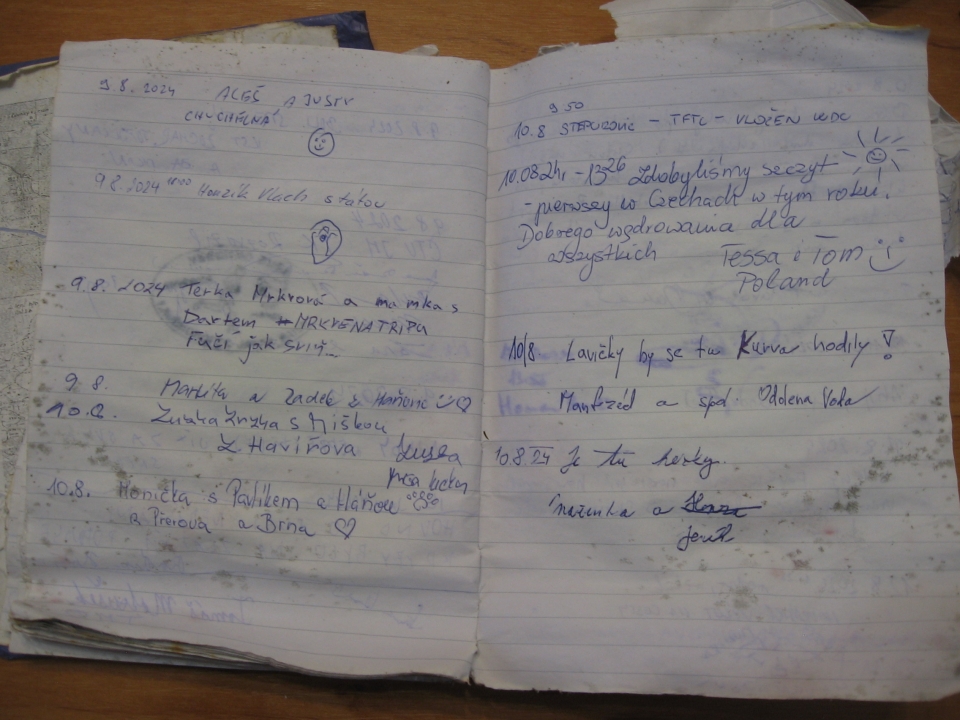 9.8.2024 ALEŠ A JUSTY
CHUCHELNÁ
9.8.2024 Honzík Vlach
9.8.2024 Terka Mrkvová a mamka s
Dartem MRKVENATRIPU
Fučí jak sviň...
9.8. Markéta a Radek z
10.8. Zuzka s Miškou
Z Havířova
10.8. Monička s Pavlíkem a Háňou
z Přerova a Brna
9 50
10.8 - TETČ -
10.08.24r - 13 26 Zdobyliśmy seczyt
- pierwszy w Czechach w tym roku!
Dobrego wzdrowania dla
wszystkich Tessa i Tom
Poland
10/8 Lavičky by se tu Kurva hodily!
Manfréd a spd. Oddena Voda
10.8.24 Je tu hezky.
a